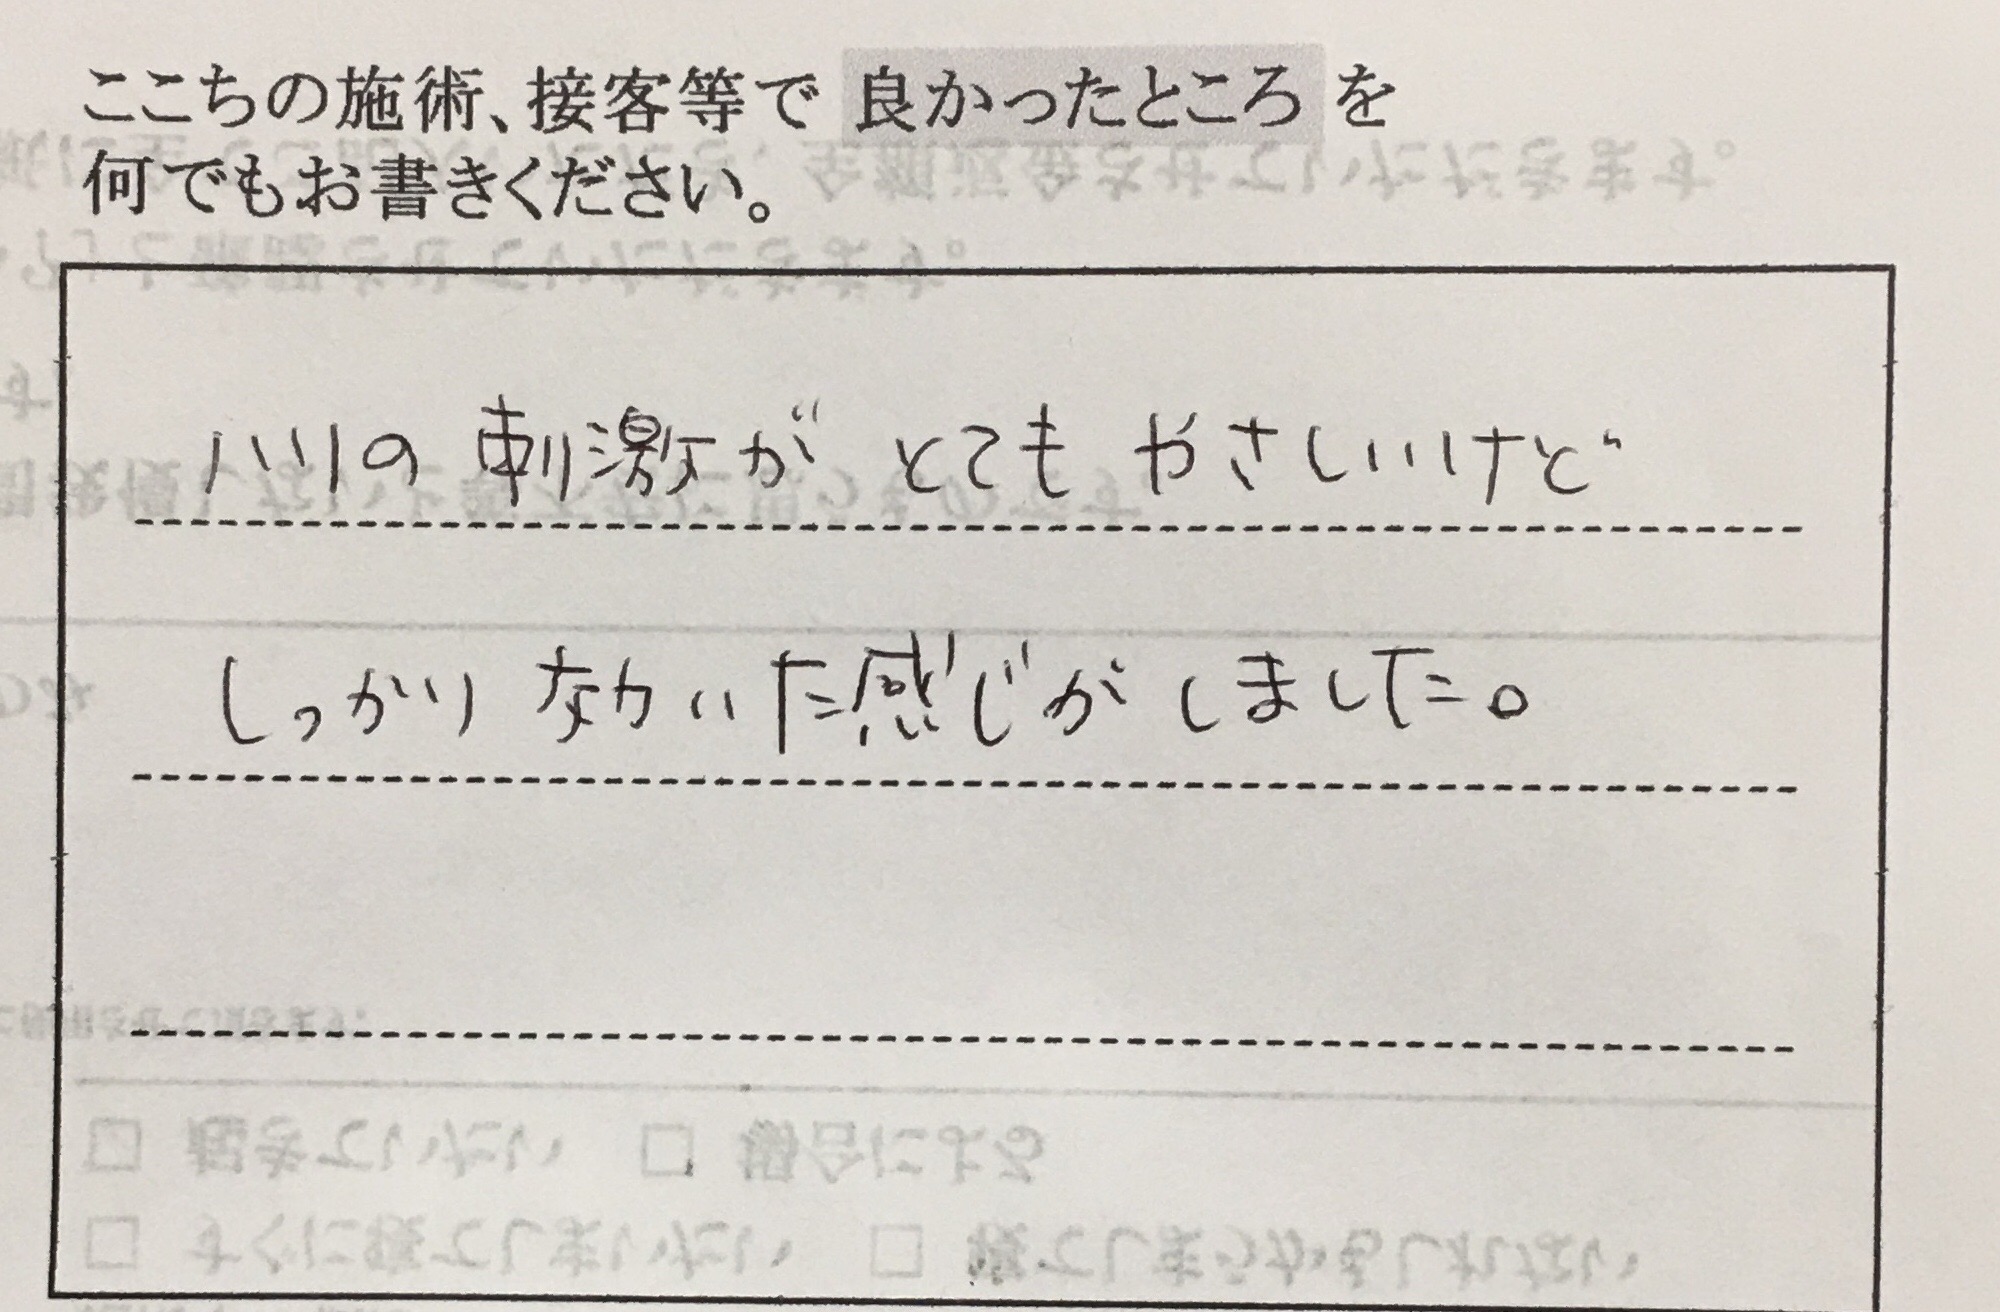 ここちの施術、接客等で 良かったところ を
何でもお書きください。
ハリの 刺激が とても やさしいけど
しっかり 効いた感じが しました。